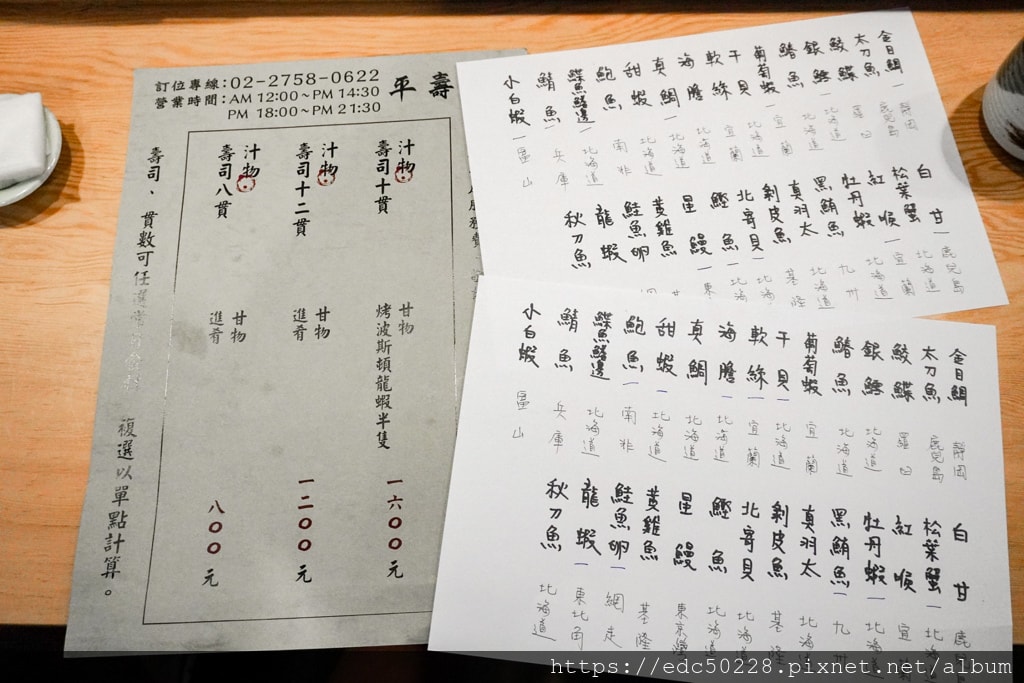 平壽
訂位專線：02-2758-0622
營業時間：AM 12:00~PM 14:30
PM 18:00~PM 21:30
汁物
壽司十貫
甘物
烤波斯頓龍蝦半隻
一六〇〇元
汁物
壽司十二貫
甘物
進肴
一二〇〇元
汁物
壽司八貫
甘物
進肴
八〇〇元
壽司、貫數可任選
複選以單點計算。
金目鯛
太刀魚 鹿兒島
鮫鰈 羅臼
銀鱈 北海道
鰆魚 北海道
葡萄蝦 宜蘭
干貝 北海道
軟絲 宜蘭
海膽 北海道
真鯛 北海道
甜蝦 北海道
鮑魚 南非
鰈魚鰭邊 北海道
鯖魚 兵庫
小白蝦 富山
白甘 鹿兒島
松葉蟹 北海道
紅喉 宜蘭
牡丹蝦 北海道
黑鮪魚 九州
真羽太 北海道
剝皮魚 基隆
北寄貝 北海
鰹魚 北海
星鰻 東
黃雞魚
鮭魚卵
龍蝦
秋刀魚
金目鯛 靜岡
太刀魚 鹿兒島
鮫鰈 羅臼
銀鱈 北海道
鰆魚 北海道
葡萄蝦 宜蘭
干貝 北海道
軟絲 宜蘭
海膽 北海道
真鯛 北海道
甜蝦 北海道
鮑魚 南非
鰈魚鰭邊 北海道
鯖魚 兵庫
小白蝦 富山
白甘 鹿兒
松葉蟹 北海
紅喉 宜
牡丹蝦 北海
黑鮪魚 九
真羽太 北海
剝皮魚 基隆
北寄貝 北海
鰹魚 北海道
星鰻 東京灣
黃雞魚 基隆
鮭魚卵 網走
龍蝦 東北角
秋刀魚 北海道
https://edc50228.pixnet.net/album